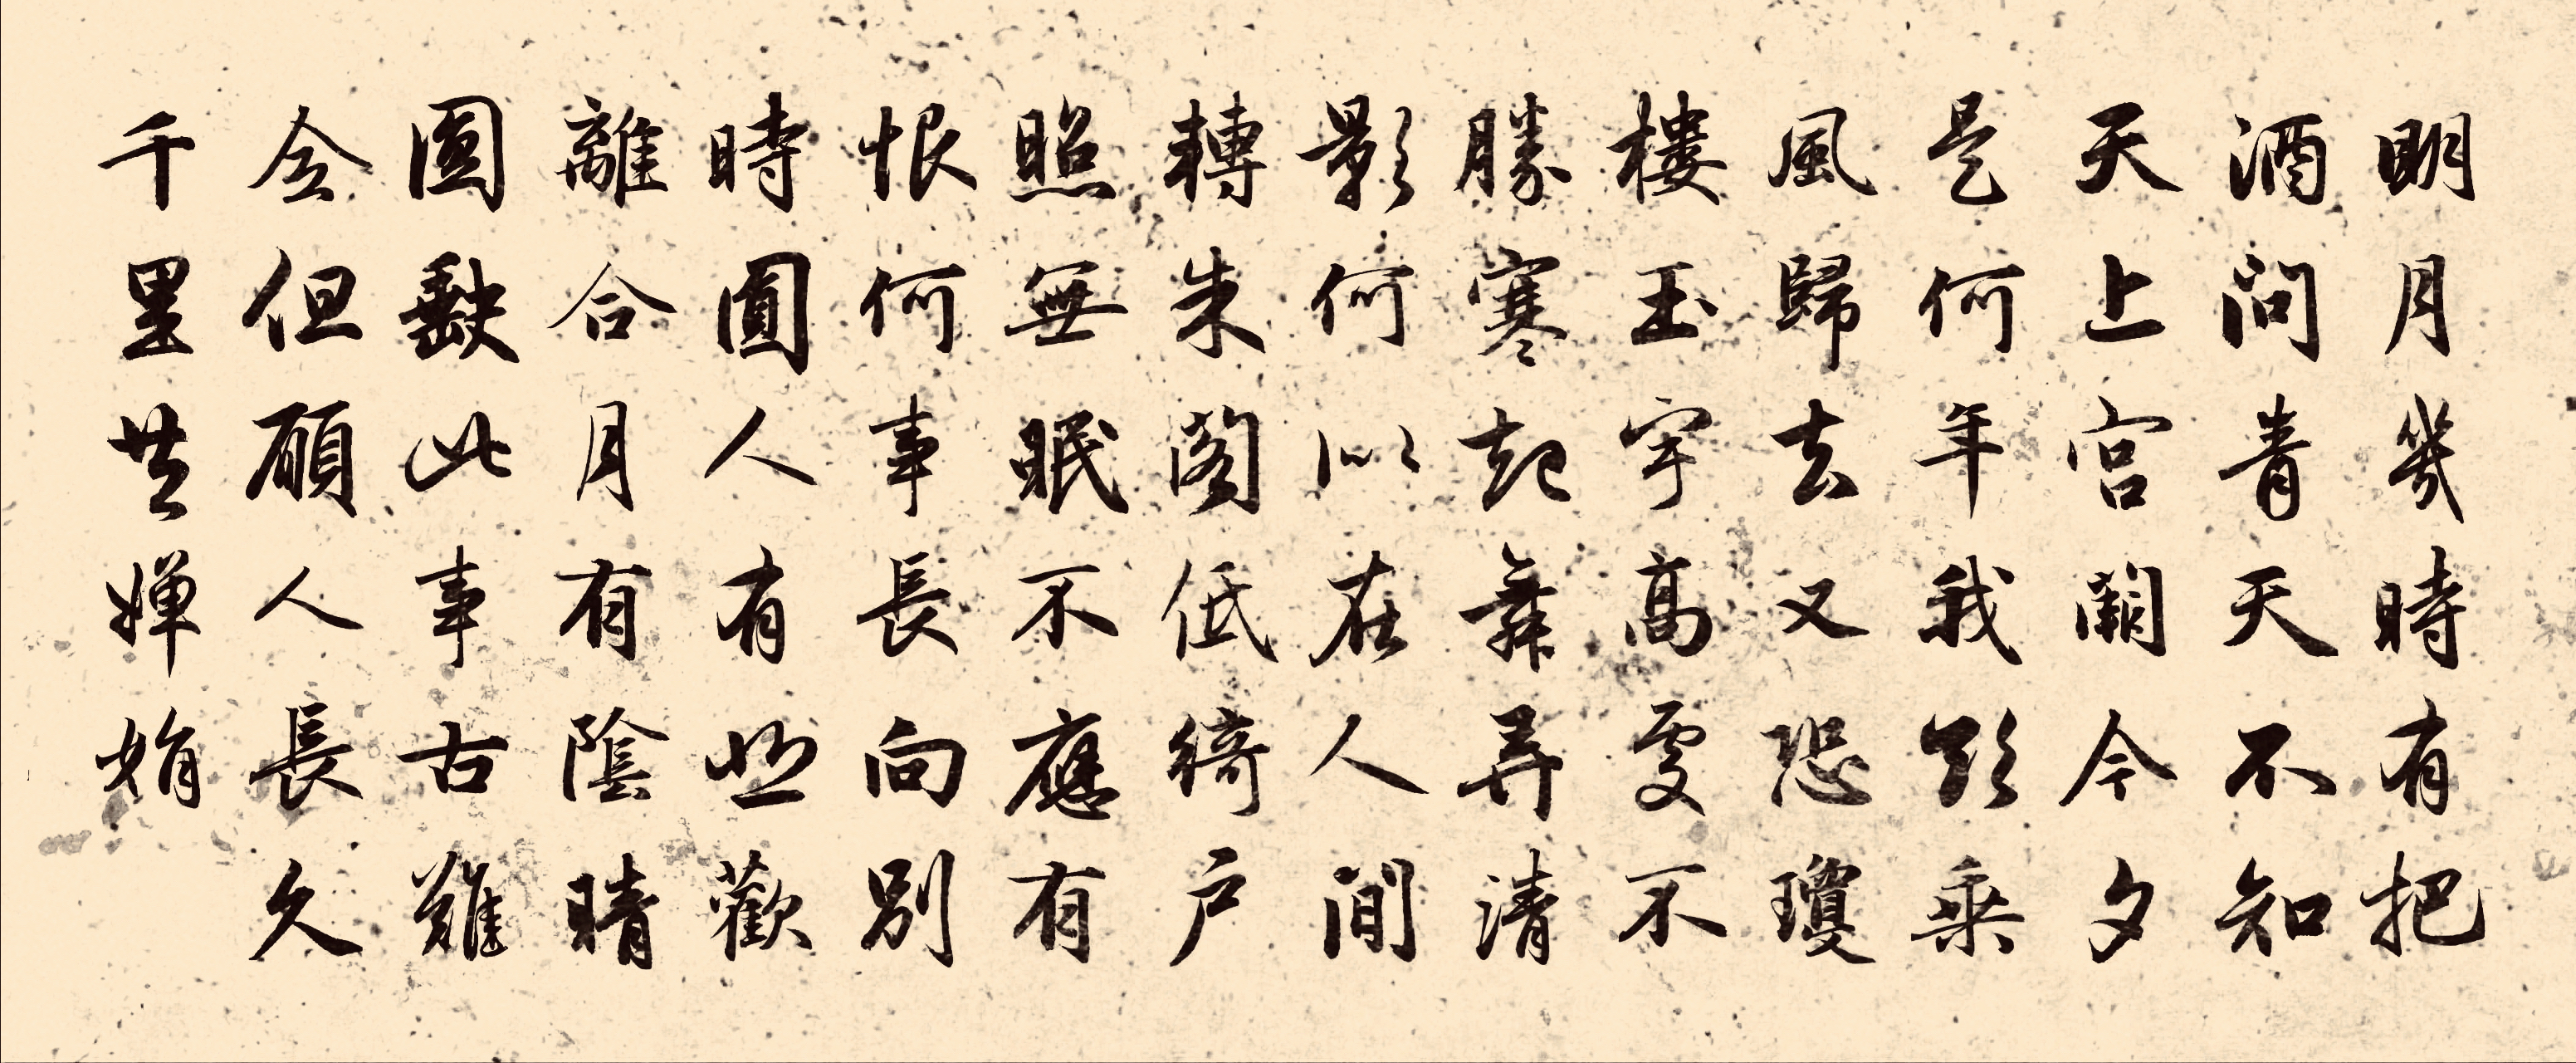 明月幾時有把
酒問青天不知
天上宮闕今夕
是何年我欲乘
風歸去又恐瓊
樓玉宇高處不
勝寒起舞弄清
影何以在人間
轉朱閣低綺戶
照無眠不應有
恨何事長向別
時圓人有悲歡
離合月有陰晴
圓缺此事古難
全但願人長久
千里共嬋娟